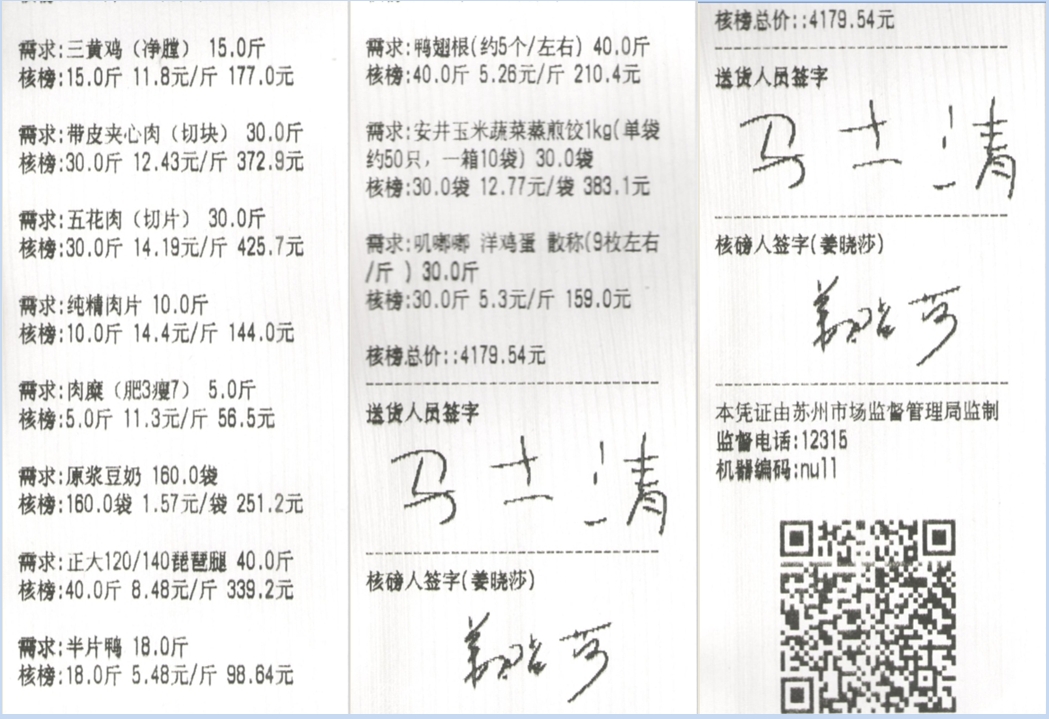 需求:三黄鸡（净膛） 15.0斤
核榜:15.0斤 11.8元/斤 177.0元
需求:带皮夹心肉（切块） 30.0斤
核榜:30.0斤 12.43元/斤 372.9元
需求:五花肉（切片） 30.0斤
核榜:30.0斤 14.19元/斤 425.7元
需求:纯精肉片 10.0斤
核榜:10.0斤 14.4元/斤 144.0元
需求:肉糜（肥3瘦7） 5.0斤
核榜:5.0斤 11.3元/斤 56.5元
需求:原浆豆奶 160.0袋
核榜:160.0袋 1.57元/袋 251.2元
需求:正大120/140琵琶腿 40.0斤
核榜:40.0斤 8.48元/斤 339.2元
需求:半片鸭 18.0斤
核榜:18.0斤 5.48元/斤 98.64元
需求:鸭翅根(约5个/左右) 40.0斤
核榜:40.0斤 5.26元/斤 210.4元
需求:安井玉米蔬菜蒸煎饺1kg(单袋
约50只，一箱10袋) 30.0袋
核榜:30.0袋 12.77元/袋 383.1元
需求:叽嘟嘟 洋鸡蛋 散称(9枚左右
/斤 ) 30.0斤
核榜:30.0斤 5.3元/斤 159.0元
核榜总价::4179.54元
送货人员签字
马士清
核磅人签字(姜晓莎)
姜晓莎
核榜总价::4179.54元
送货人员签字
马士清
核磅人签字(姜晓莎)
姜晓莎
本凭证由苏州市场监督管理局监制
监督电话:12315
机器编码:null